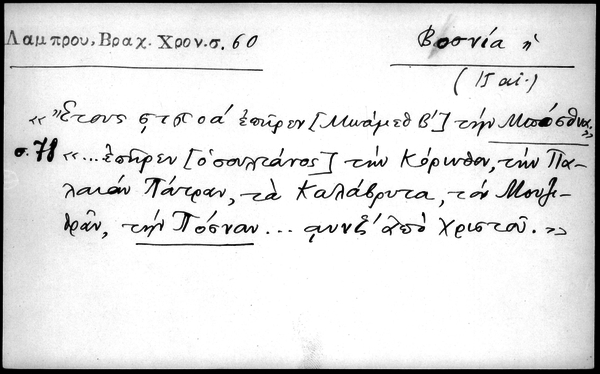 Λαμπρου, Βραχ. Χρον. σ. 60
Βοσνία ἡ
(15 αἰ.)
« Ἔτους ςτποα´ ἐπῆρεν [Μωάμεθ Β´] τὴν Μπόσθνα »
σ. 78 «... ἐπῆρεν [ὁ σουλτάνος] τὴν Κόρινθον, τὴν Πα-
λαιὰν Πάτραν, τὰ Καλάβρυτα, τὸν Μουχ-
θρᾶν, τὴν Πόσναν ... αυνξ´ ἀπὸ Χριστοῦ. »